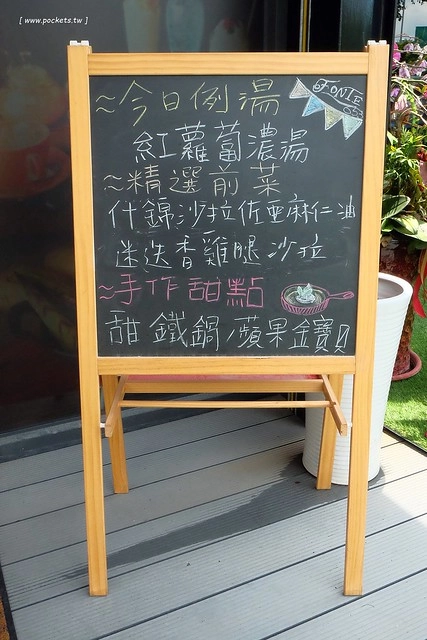 [ www.pockets.tw ]
FONTE
~今日例湯
紅蘿蔔濃湯
~精選前菜
什錦沙拉佐亞麻仁油
迷迭香雞腿沙拉
~手作甜點
甜鐵鍋/蘋果金寶